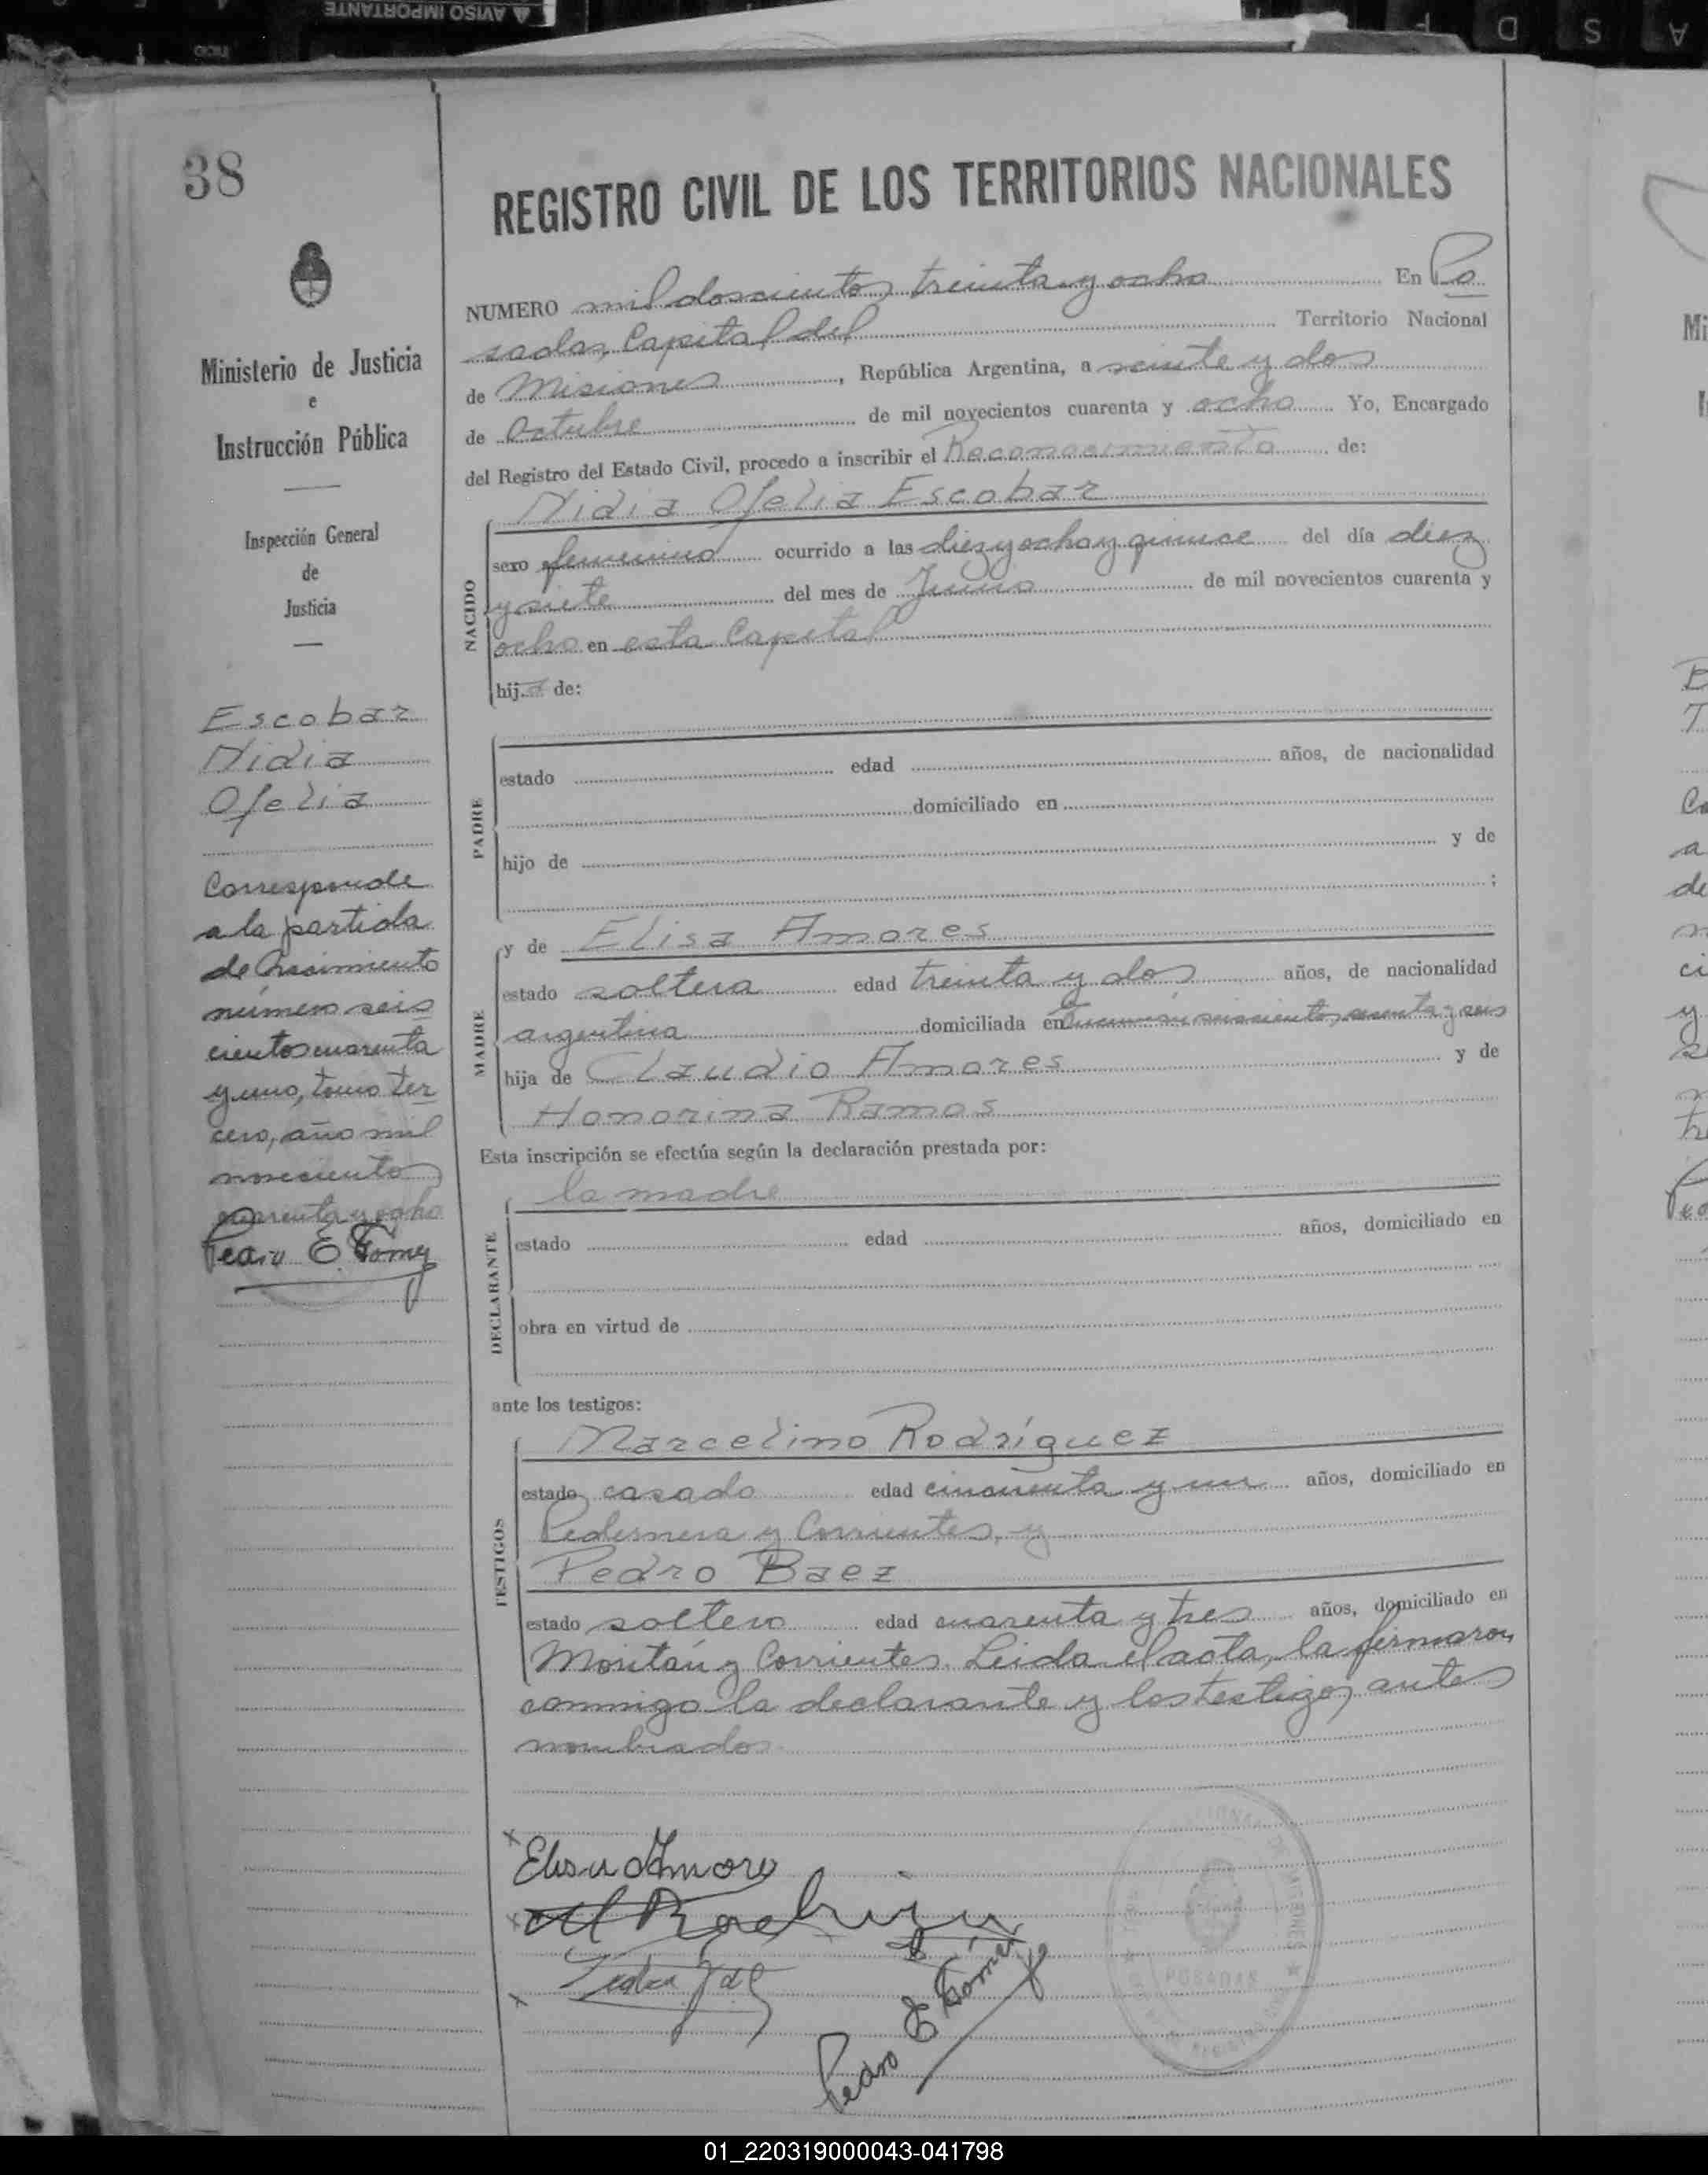 AVISO IMPORTANTE
INICIO
A S D F
38
Ministerio de Justicia
e
Instrucción Pública
Inspección General
de
Justicia
Escobar
Nidia
Ofelia
Corresponde
a la partida
de Nacimiento
número seis
cientos cuarenta
y uno, tomo ter
cero, año mil
novecientos
cuarenta y ocho
Pedro E. Gomez
REGISTRO CIVIL DE LOS TERRITORIOS NACIONALES
NUMERO mil doscientos treinta y ocho En Po
sadas, Capital del Territorio Nacional
de Misiones, República Argentina, a veinte y dos
de Octubre de mil novecientos cuarenta y ocho Yo, Encargado
del Registro del Estado Civil, procedo a inscribir el Reconocimiento de:
Nidia Ofelia Escobar
NACIDO
sexo femenino ocurrido a las diez y ocho y quince del día diez
y siete del mes de Junio de mil novecientos cuarenta y
ocho en esta Capital
hija de:
PADRE
estado edad años, de nacionalidad
domiciliado en
hijo de y de
;
MADRE
y de Elisa Amores
estado soltera edad treinta y dos años, de nacionalidad
argentina domiciliada en Tucumán seiscientos y seis
hija de Claudio Amores y de
Honorina Ramos
Esta inscripción se efectúa según la declaración prestada por:
DECLARANTE
la madre
estado edad años, domiciliado en
obra en virtud de
ante los testigos:
TESTIGOS
Marcelino Rodríguez
estado casado edad cincuenta y un años, domiciliado en
Pedernera y Corrientes, y
Pedro Baez
estado soltero edad cuarenta y tres años, domiciliado en
y Corrientes. Leida el acta, la firmaron
conmigo la declarante y los testigos antes
nombrados.
Elisa Amores
Pedro E Gómez
POSADAS
01_220319000043-041798